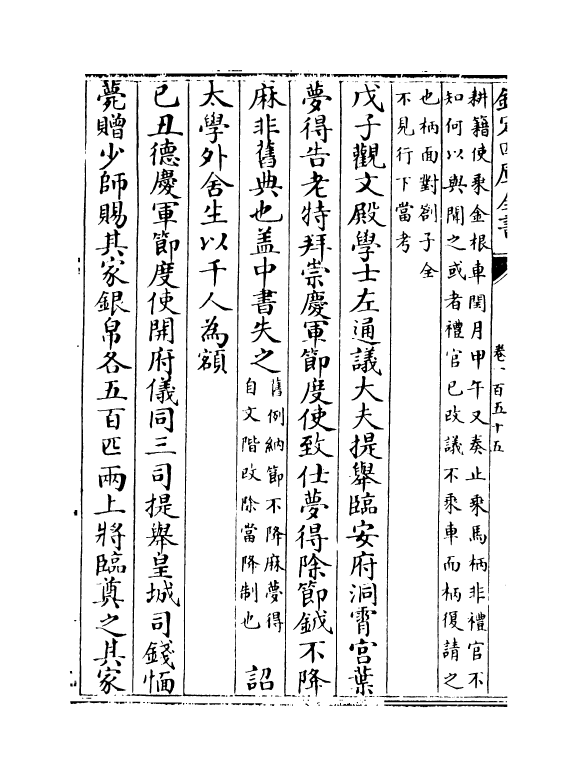 欽定四庫全書
卷一百五十五
耕籍使乘金根車閏月甲午又奏止乘馬柄非禮官不
知何以與聞之或者禮官已改議不乘車而柄復請之
也柄面對劄子全
不見行下當考
戊子觀文殿學士左通議大夫提舉臨安府洞霄宮葉
夢得告老特拜崇慶軍節度使致仕夢得除節鉞不降
麻非舊典也盖中書失之舊例納節不降麻夢得
自文階改除當降制也 詔
太學外舍生以千人為額
己丑德慶軍節度使開府儀同三司提舉皇城司錢愐
薨贈少師賜其家銀帛各五百匹兩上將臨奠之其家